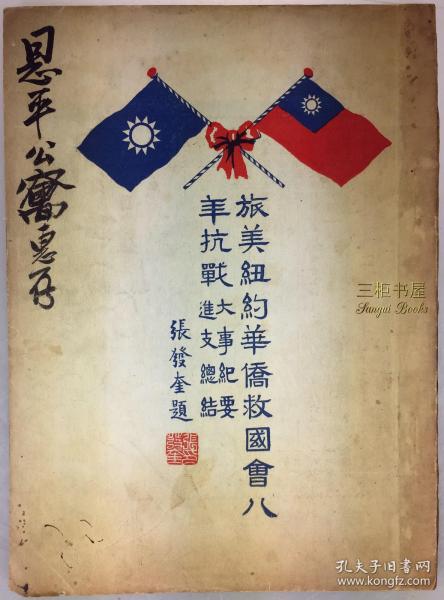 恩平公寓惠存
旅美紐約華僑救國會八
年抗戰大事紀要
進支總結
張發奎題
三柜书屋
Sangui Books
孔夫子旧书网
book.kongfz.com